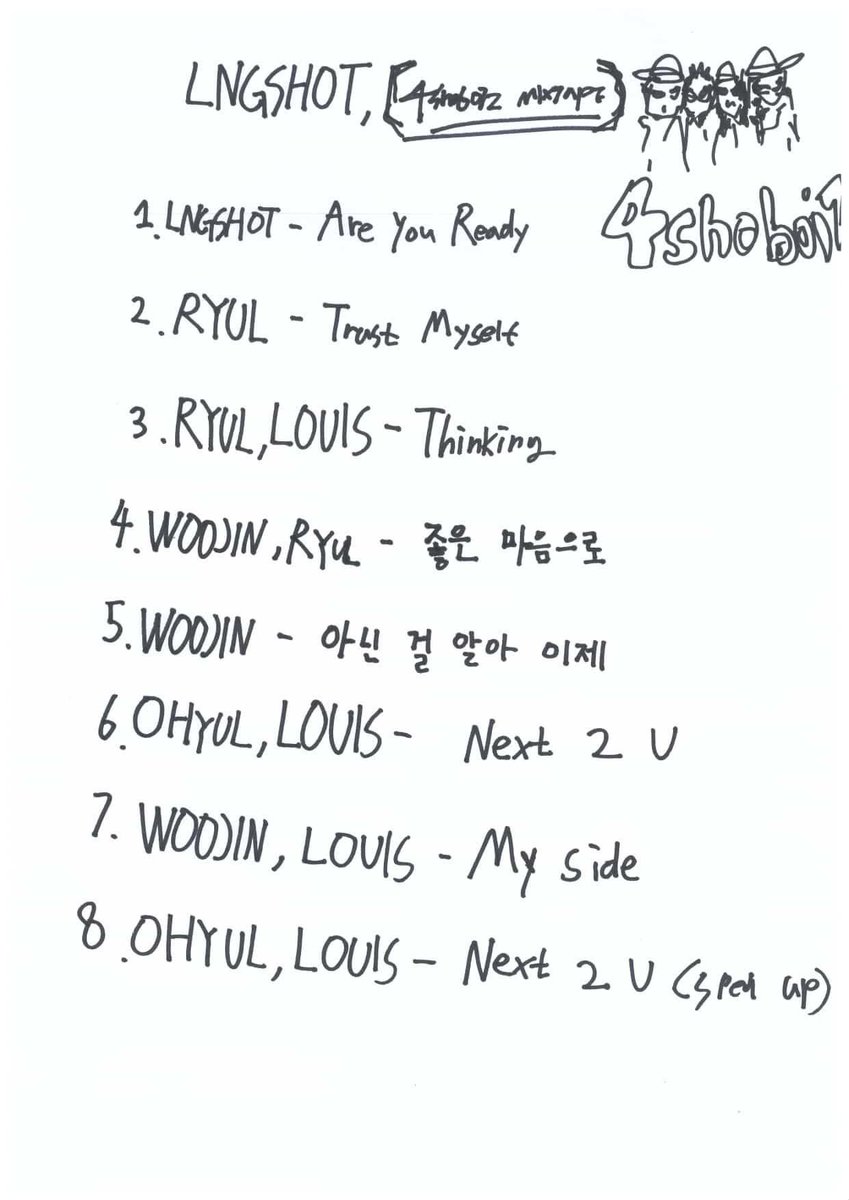 LNGSHOT, [4SHOBOIZ MIXTAPE]
4shoboi
1. LNGSHOT - Are You Ready
2. RYUL - Trust Myself
3. RYUL, LOUIS - Thinking
4. WOOJIN, RYUL - 좋은 마음으로
5. WOOJIN - 아닌 걸 알아 이제
6. OHYUL, LOUIS - Next 2 U
7. WOOJIN, LOUIS - My side
8. OHYUL, LOUIS - Next 2 U (sped up)